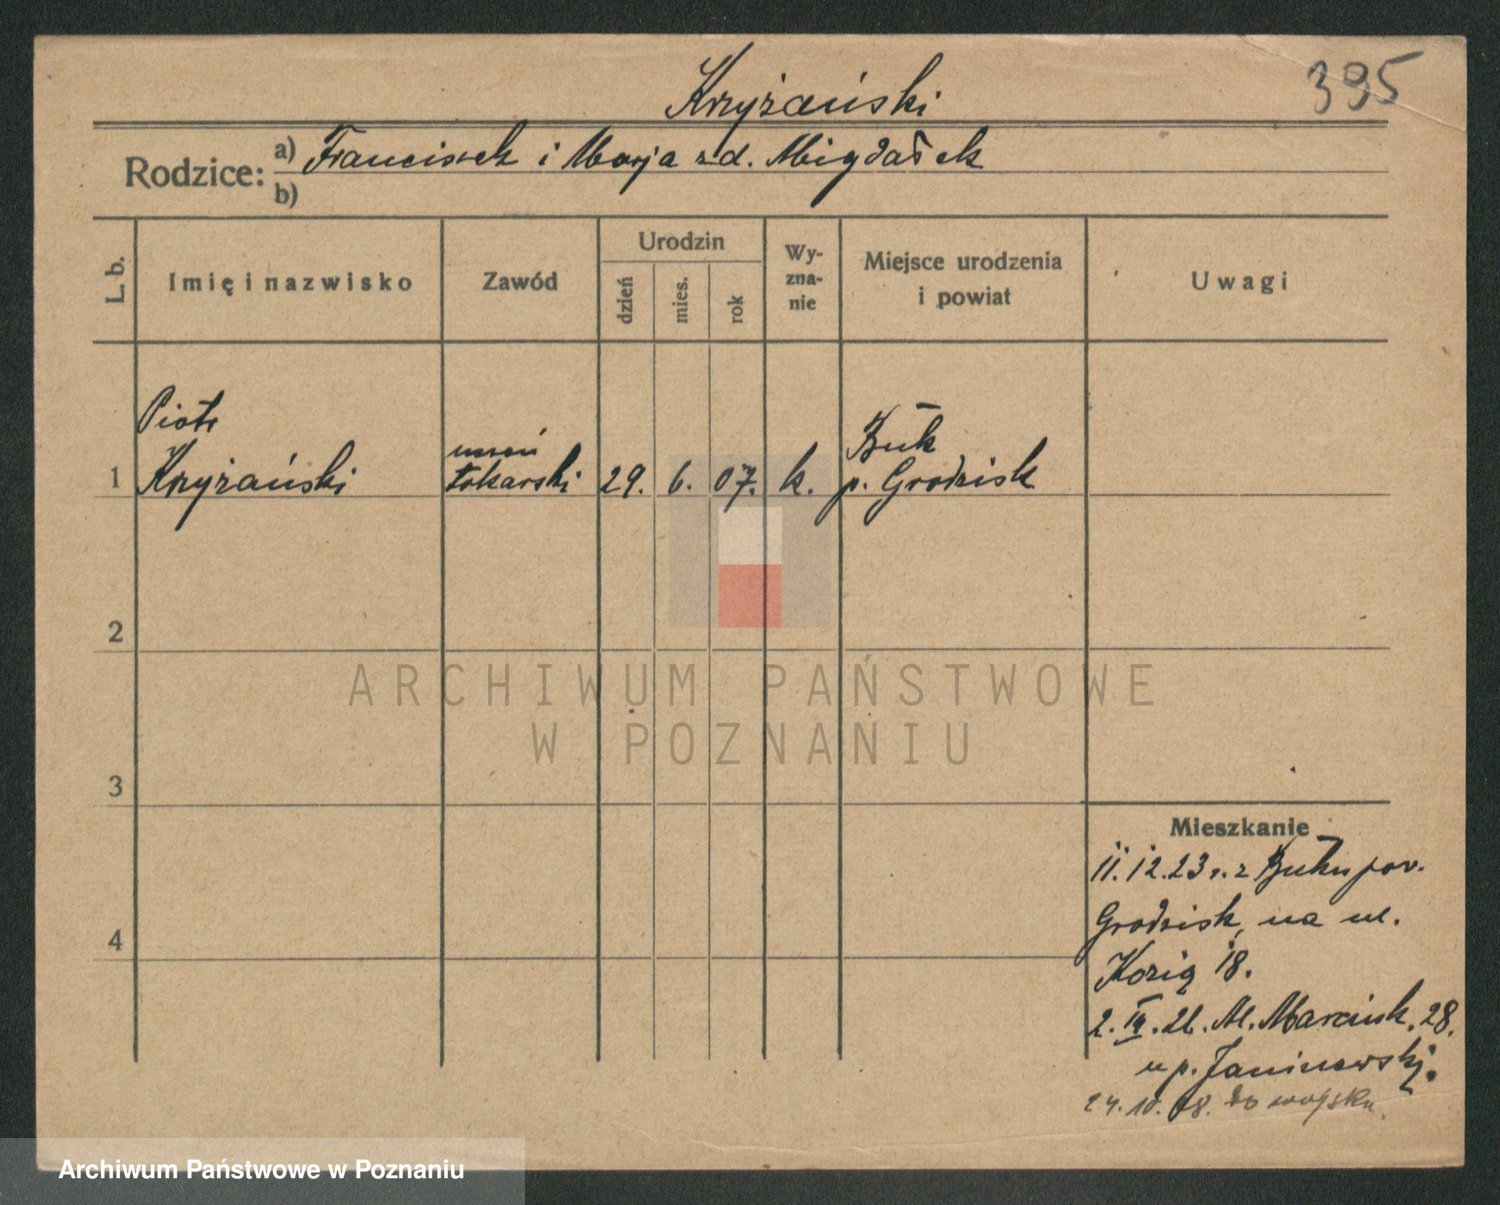 Krzyżański
395
Rodzice: a) Franciszek i Marja zd. Migdałek
b)
L. b.
Imię i nazwisko
Zawód
Urodzin
dzień
mies.
rok
Wy-
zna-
nie
Miejsce urodzenia
i powiat
Uwagi
Piotr
Krzyżański
uczeń
tokarski
29. 6. 07. k.
Buk
p. Grodzisk
1
2
3
4
ARCHIWUM PAŃSTWOWE
W POZNANIU
Mieszkanie
11.12.23 r. z Buku pow.
Grodzisk, na ul.
Kozią 18.
2. IV. 26. Al. Marcink. 28.
u p. Janinowskj.
24. 10. 28. do wojska.
Archiwum Państwowe w Poznaniu